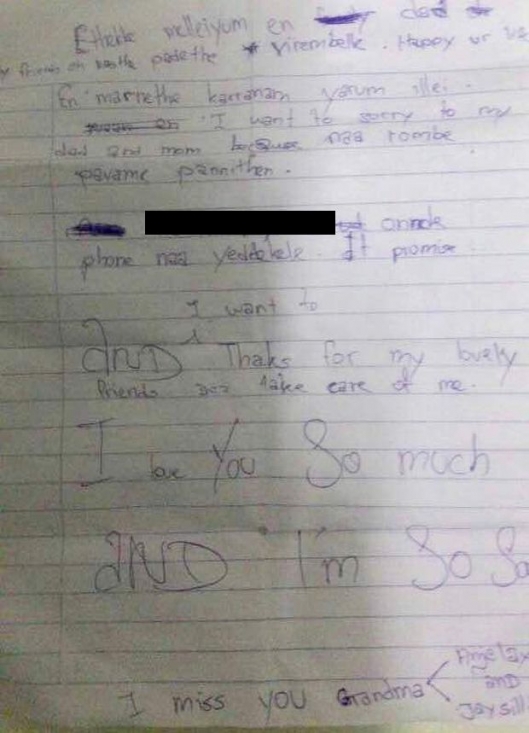 Ethekke melleiyum en dad
padethe virembelle. Happy ur
En marnethe karranam yarum illei.
I want to sorry to my
dad and mom because naa rombe
pavame pannithen.
onnok
phone naa yeddekele. It promise
I want to
AND Thaks for my lovely
friends take care of me.
I love You So much
AND I'm So So
I miss you Grandma
and